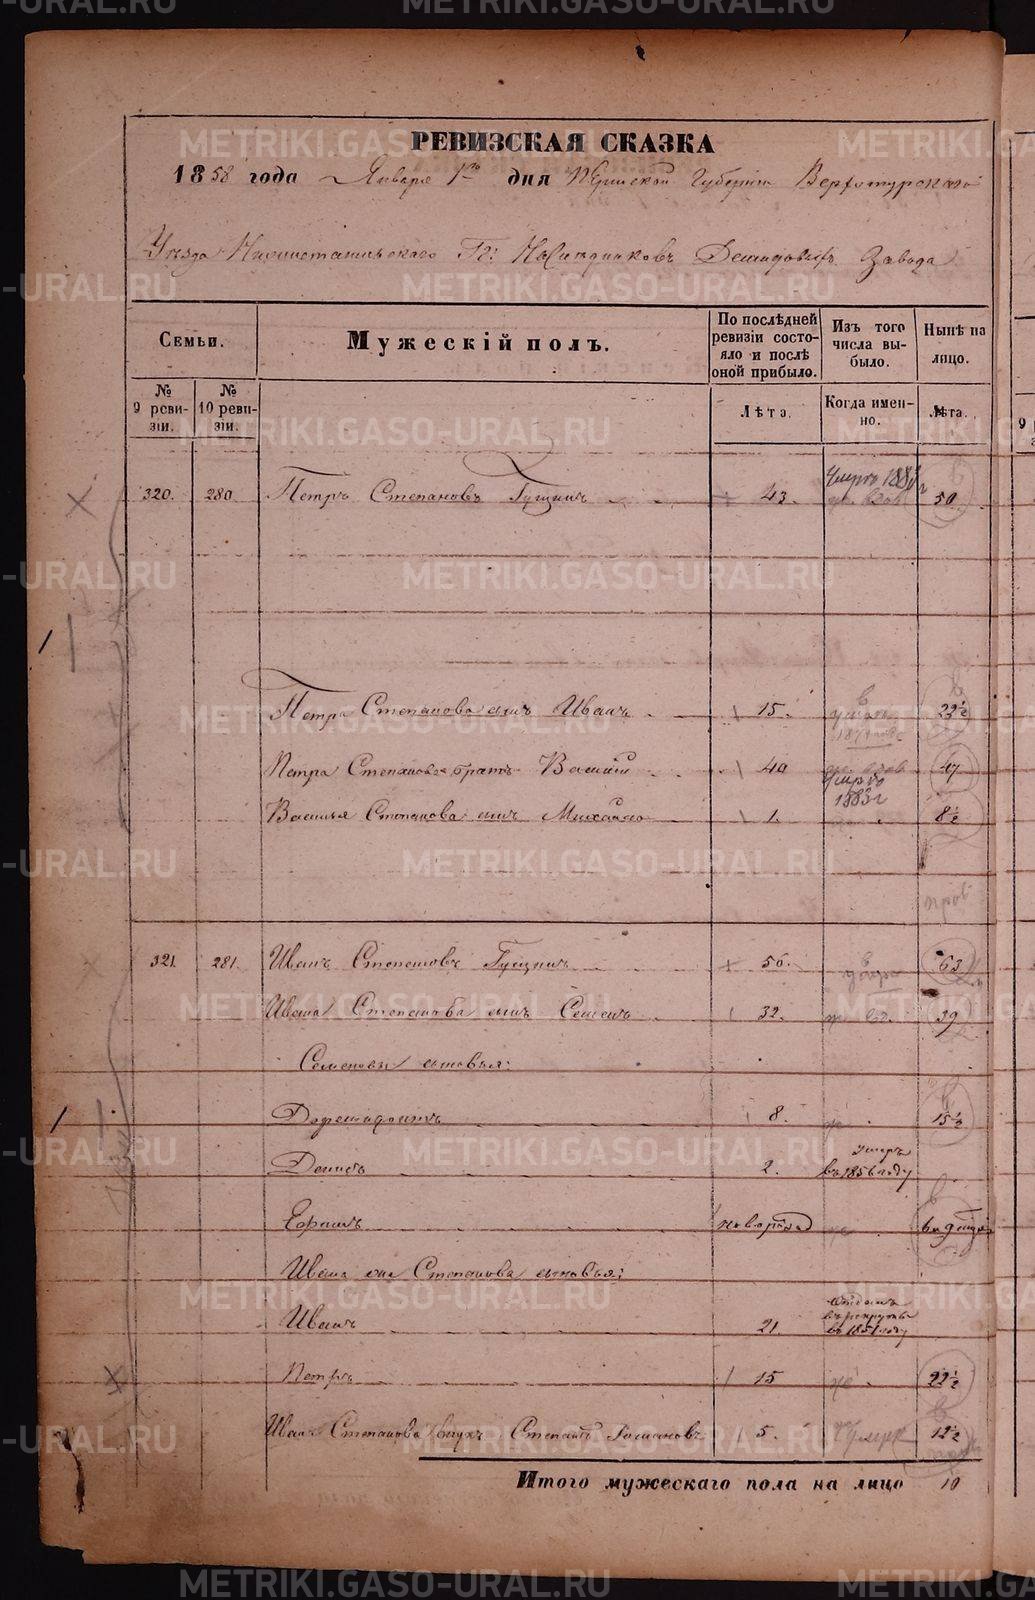 РЕВИЗСКАЯ СКАЗКА
1858 года Января 1го дня Пермской Губернии Верхотурскаго
Уезда Нижнетагильскаго Гг: Наследниковъ Демидовыхъ Завода
Семьи.
Мужескій полъ.
По послѣдней ревизіи состояло и послѣ оной прибыло.
Изъ того числа выбыло.
Нынѣ на лицо.
№ 9 ревизіи.
№ 10 ревизіи.
Лѣта.
Когда именно.
Лѣта.
320. 280. Петръ Степановъ Гущинъ 43 умеръ 50.
Петра Степанова сынъ Иванъ 15. 22½
Петра Степанова братъ Василій 40 умеръ 1883 г 47
Василья Степанова сынъ Михайло 1. 8½
321. 281. Иванъ Степановъ Гущинъ 56. 63
Ивана Степанова сынъ Семенъ 32. 39
Семеновы сыновья:
8. 15½
Денисъ 2. умеръ въ 1856 году
Ефимъ новорожд
Ивана Степанова сыновья:
Иванъ 21 отданъ въ рекруты въ 1851 году
Петръ 15 22½
Ивана Степанова внукъ Степанъ 5. 12½
Итого мужескаго пола на лицо 10
METRIKI.GASO-URAL.RU